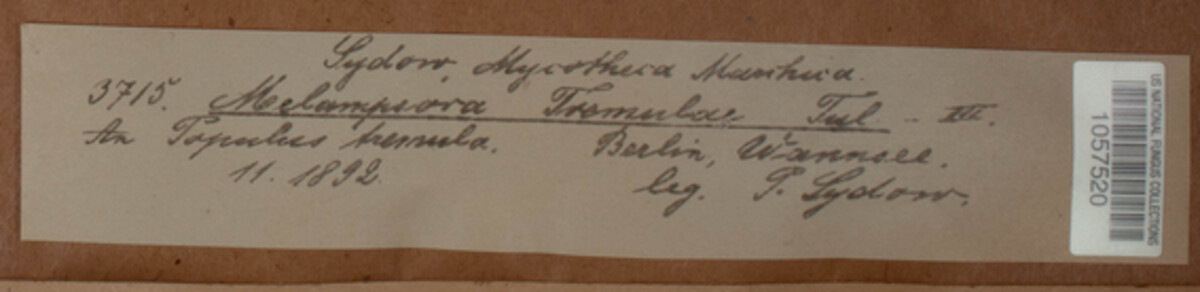 Sydow, Mycotheca Marchica.
3715. Melampsora Tremulae Tul. - III.
An Populus tremula. Berlin, Wannsee.
11. 1892. leg. P. Sydow.
US NATIONAL FUNGUS COLLECTIONS
1057520